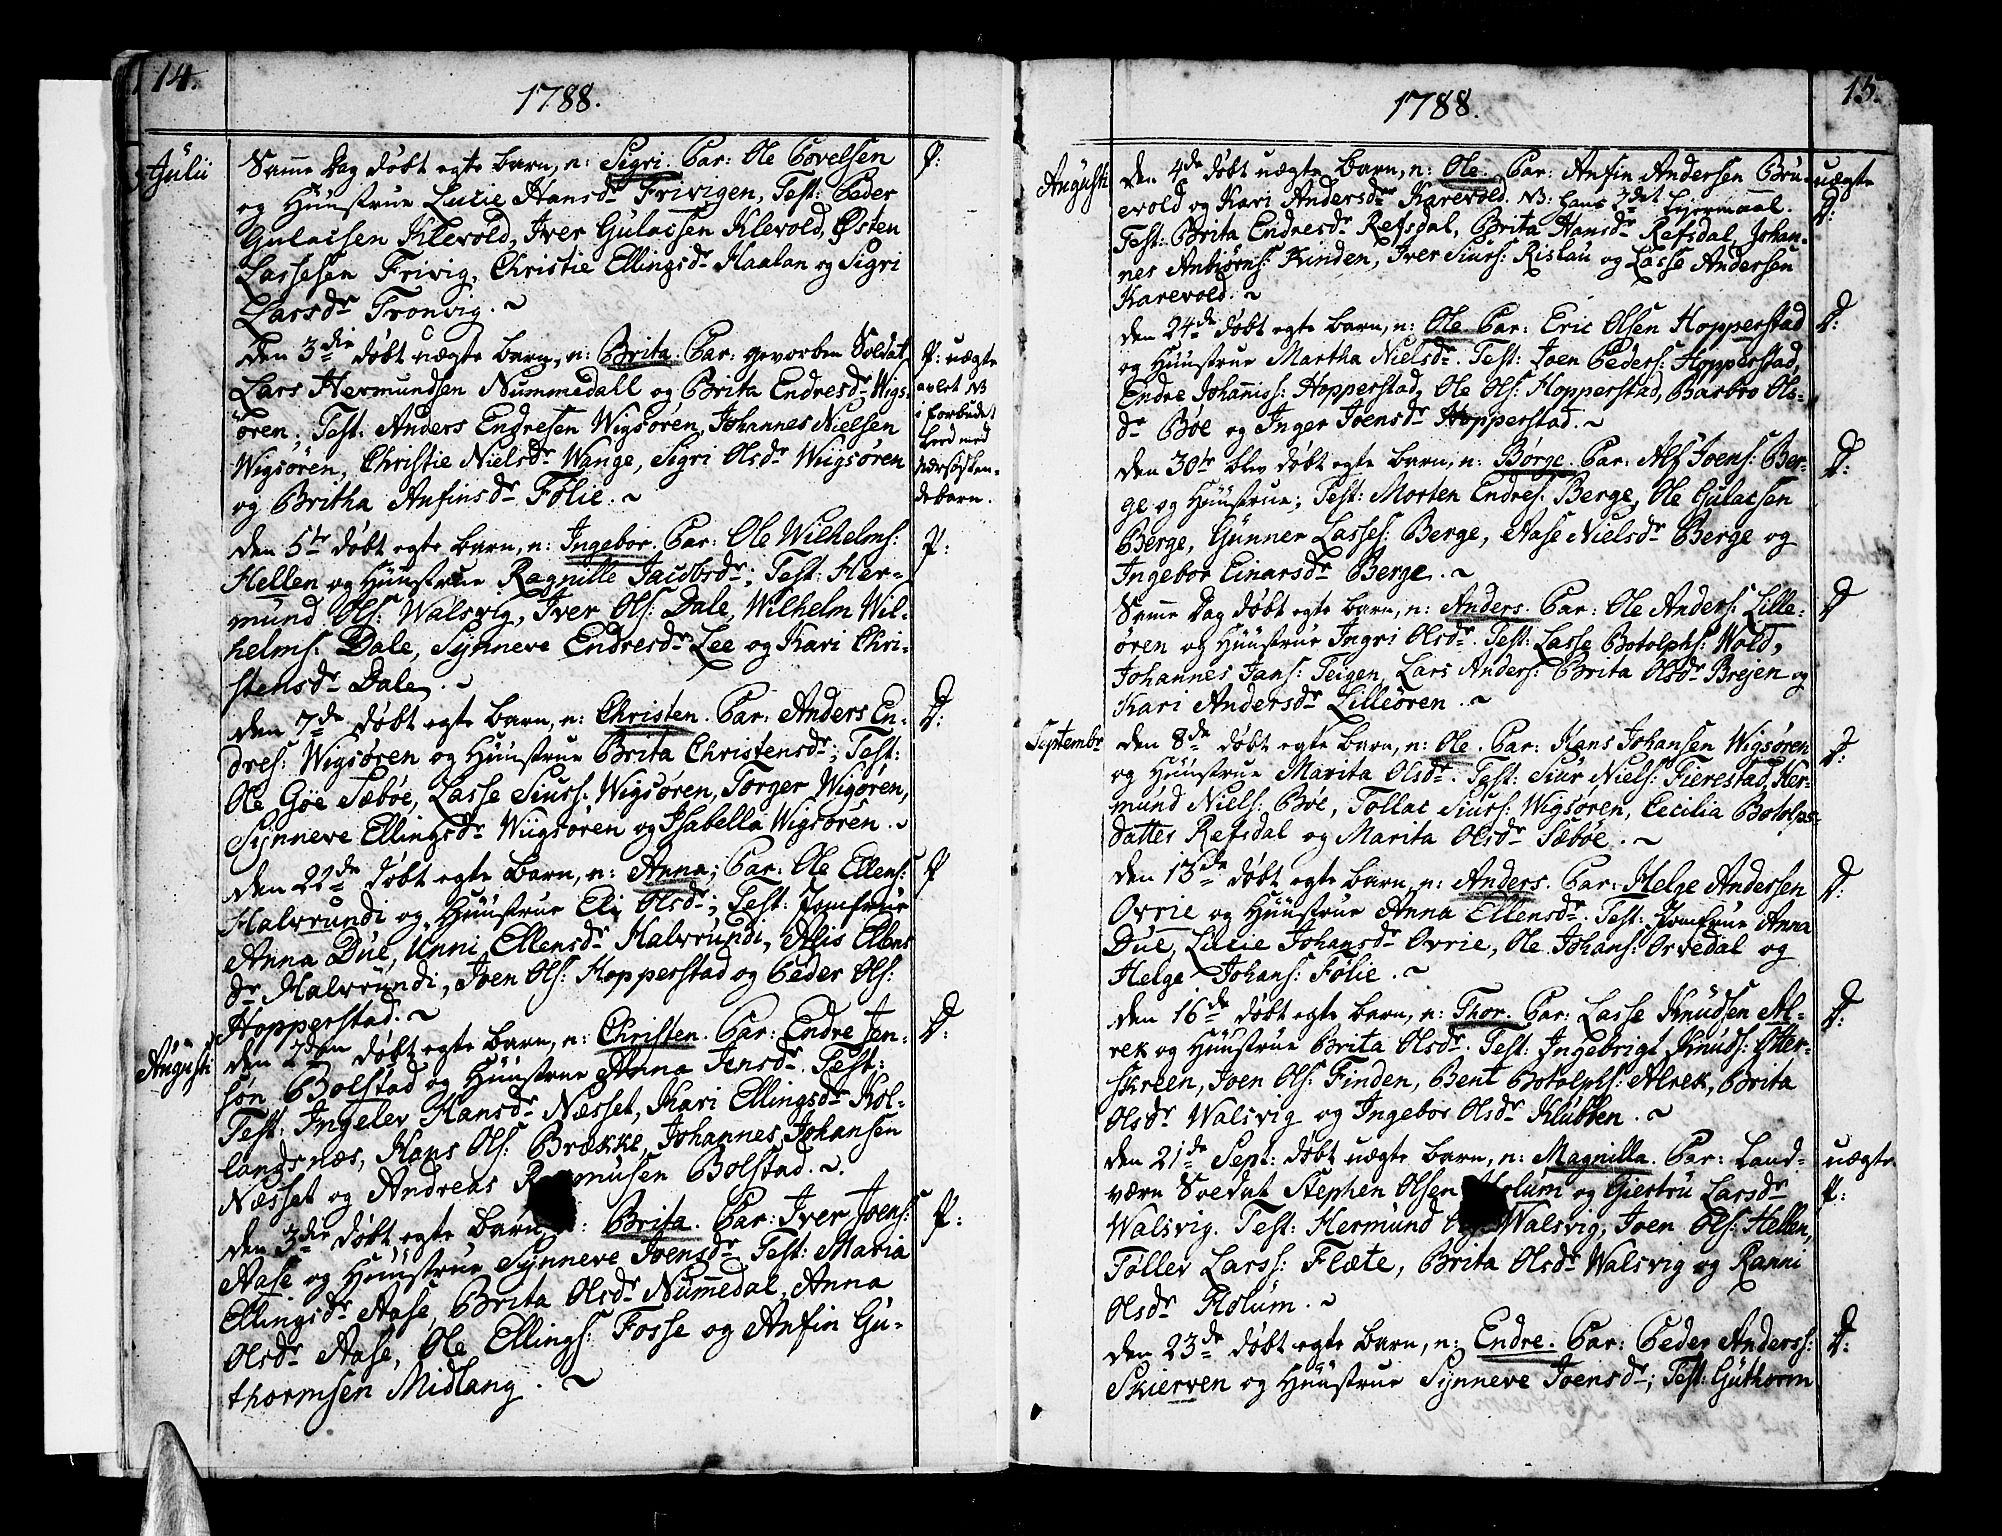 14.
1788.
Julii
Samme Dag døbt egte barn, n: Sigri. Par: Ole Povelsen
P:
og Hüüstrue Lucie Hansdr Frivigen, Test: Peder
Gulacsen Klevold, Iver Gulacsen Klevold, Østen
Lassesen Frivig, Christie Ellingsdr Haalan og Sigri
Larsdr Tronvig. ~
Den 3die døbt uægte barn, n: Brita. Par: gevorben Soldat
P: uægte
Lars Hermundsen Nummedall og Brita Endresdr Wigs-
avlet NB
ören; Test: Anders Endresen Wigsören, Johannes Nielsen
i forbudet
Wigsören, Christie Nielsdr Wange, Sigri Olsdr Wiigsören
Leed med
Nærsøsken-
og Britha Anfinsdr Fölie. ~
debarn.
den 5te døbt egte barn, n: Ingebor. Par: Ole Wilhelms:
P:
Hellen og Hüüstrue Ragnille Jacobsdr; Test: Her-
mund Ols: Walsvig, Iver Ols: Dale, Wilhelm Wil-
helms: Dale, Synneve Endresdr Lee og Kari Chri-
stensdr Dale. ~
den 7de døbt egte barn, n: Christen. Par: Anders En-
P:
dres: Wigsören og Hüüstrue Brita Christensdr; Test:
Ole Göe Sæböe, Lasse Siurs: Wigsören, Torger Wigören,
Synneve Ellingsdr Wiigsoren og Isabella Wigsören. ~
den 22de døbt egte barn, n: Anna; Par: Ole Ellens:
P
Halvrundi og Hüüstrue Eli Olsdr; Test: Jomfrue
Anna Düe, Unni Ellensdr Halvrundi, Alis Ellens
dr Halvründi, Joen Ols: Hopperstad og Peder Ols:
Hopperstad. ~
Augusti
den 2den døbt egte barn, n: Christen. Par: Endre Jen-
P:
søn Bolstad og Hüüstrue Anna Jensdr. Test:
Test: Ingelev Hansdr Næsset, Kari Ellingsdr Hol-
landsnæs, Hans Ols: Brække, Johannes Johansen
Næsset og Andreas R musen Bolstad. ~
den 3die døbt egte barn : Brita. Par: Iver Joens:
P:
Aase og Hüüstrue Synneve Joensdr Test: Maria
Ellingsdr Aase, Brita Olsdr Nummedal, Anna
Olsdr Aase, Ole Ellings: Fosse og Anfin Gu-
thormsen Midlang. ~
15.
1788.
Augusti
den 4de døbt uægte barn, n: Ole. Par: Anfin Andersen Brü-
uægte
evold og Kari Andersdr Karevold. NB: hans 3det Leyermaal.
P:
Test: Brita Endresdr Refsdal, Brita Hansdr Refsdal, Johan-
nes Anbiörns: Kinden, Iver Siurs: Rislau og Lasse Andersen
Karevold. ~
den 24de døbt egte barn, n: Ole Par: Eric Olsen Hopperstad
P:
og Hüüstrue Martha Nielsdr. Test: Joen Peders: Hopperstad,
Endre Johannis: Hopperstad, Ole Ols: Hopperstad, Barbro Ols-
dr Böe og Inger Joensdr Hopperstad. ~
den 30te blev døbt egte barn, n: Börge. Par: Alf Joens: Ber-
P:
ge og Hüüstrue; Test: Morten Endres: Berge, Ole Gulacsen
Berge, Gunner Lasses: Berge, Aase Nielsdr Berge og
Ingebor Einarsdr Berge. ~
Samme Dag døbt egte barn, n: Anders. Par: Ole Anders: Lille-
P
ören og Hüüstrue Ingri Olsdr. Test: Lasse Botolphs: Wold,
Johannes Jans: Teigen, Lars Anders: Brita Olsdr Brejen og
Kari Andersdr Lilleören. ~
Septembr
den 8de døbt egte barn, n: Ole. Par: Hans Johansen Wigsören
P:
og Hüüstrue Marita Olsdr. Test: Siur Niels: Fierestad, Her-
mund Niels: Böe, Tollac Siurs: Wigsören, Cecilia Botolps-
datter Refsdal og Marita Olsdr Sæböe. ~
den 13de døbt egte barn, n: Anders. Par: Helge Andersen
P:
Ovrie og Hüüstrue Anna Ellensdr. Test: Jomfrue Anna
Düe, Lucie Johansdr Ovrie, Ole Johans: Orvedal og
Helge Johans: Fölie. ~
den 16de døbt egte barn, n: Thor. Par: Lasse Knudsen Al-
P:
rek og Hüüstrue Brita Olsdr. Test: Ingebrigt Knuds: Otter-
skreen, Joen Ols: Finden, Bent Botolphs: Alrek, Brita
Olsdr Walsvig og Ingebor Olsdr Klubben. ~
den 21de Sept: døbt uægte barn, n: Magnilla. Par: Land-
uægte
værn Soldat Stephen Olsen Holum og Giertru Larsdr
P:
Walsvig. Test: Hermund Walsvig, Joen Ols: Hellen,
Töllev Larss: Flæte, Brita Olsdr Walsvig og Ranni
Olsdr Holum. ~
den 23de døbt egte barn, n: Endre. Par: Peder Anderss:
P:
Skierven og Hüüstrue Synneve Joensdr; Test: Guthorm